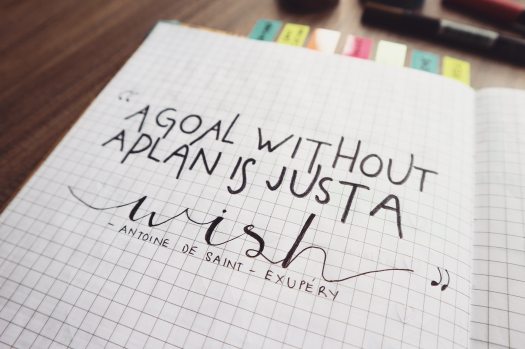 "A GOAL WITHOUT
A PLAN IS JUST A
wish"
- ANTOINE DE SAINT - EXUPÉRY